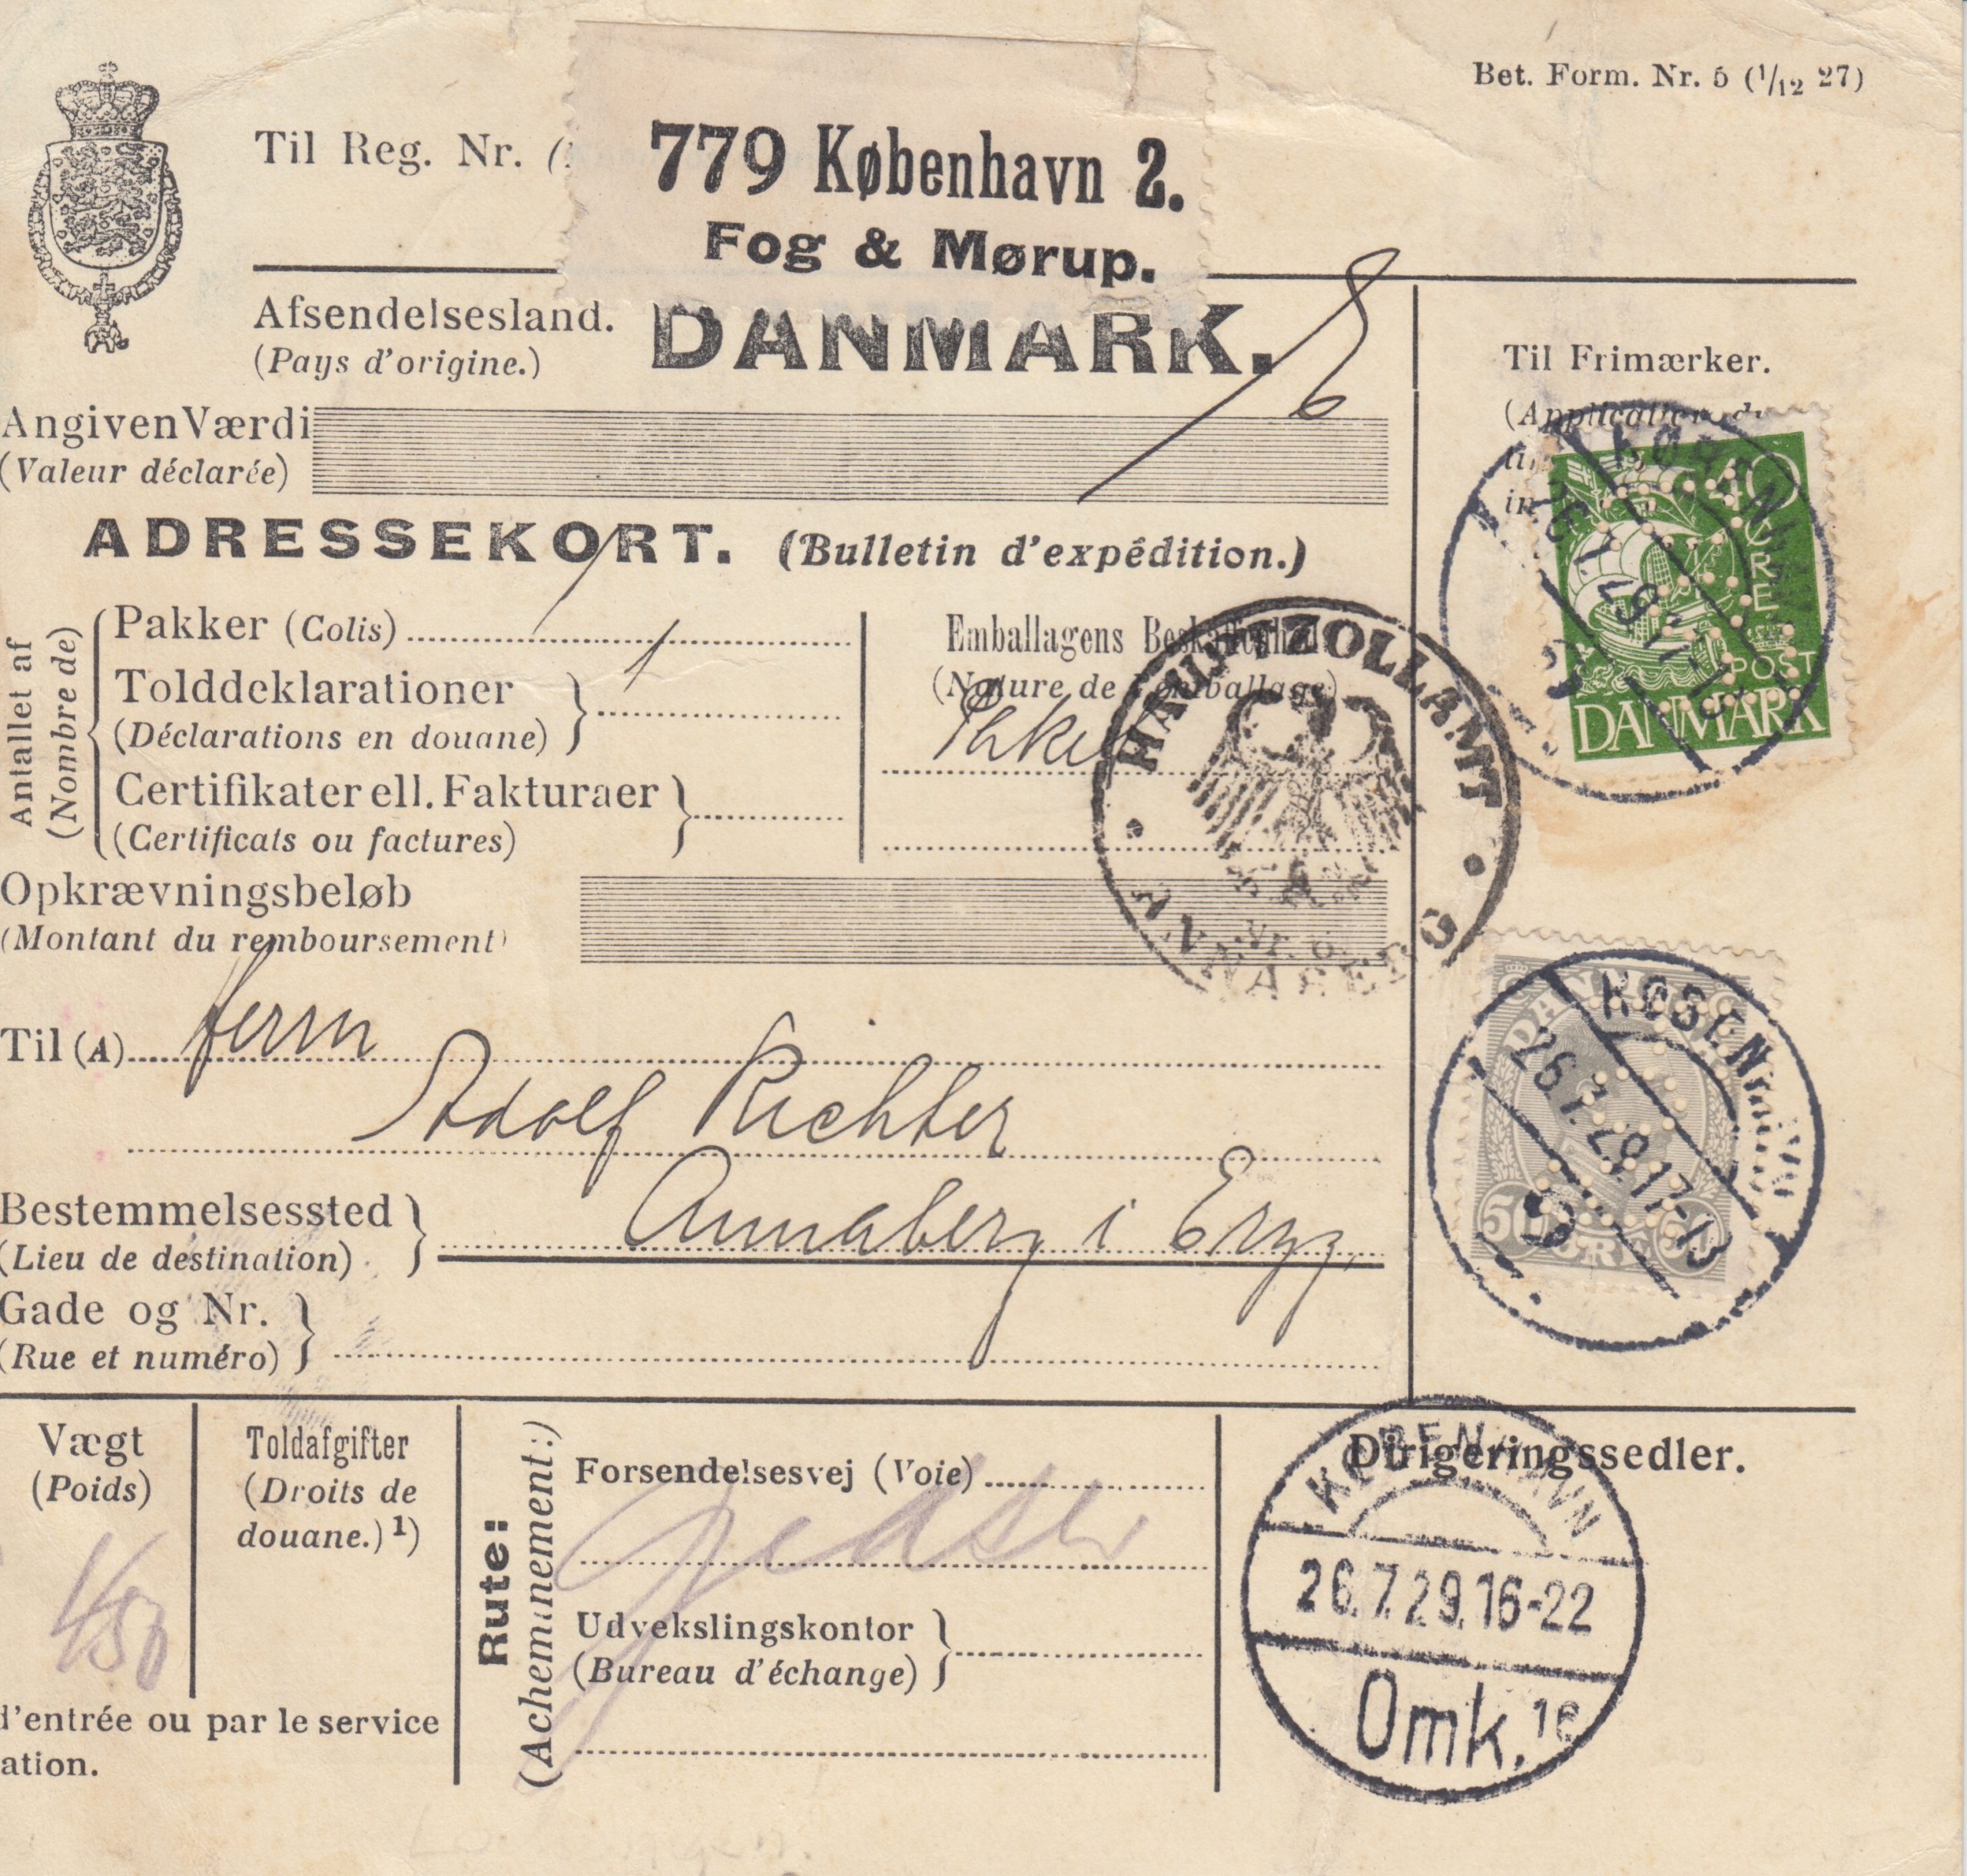 Bet. Form. Nr. 5 (1/12 27)
Til Reg. Nr. (
779 København 2.
Fog & Mørup.
Afsendelsesland.
(Pays d'origine.)
DANMARK.
Til Frimærker.
(Application du
Angiven Værdi
(Valeur déclarée)
ADRESSEKORT. (Bulletin d'expédition.)
Antallet af
(Nombre de)
Pakker (Colis)
1
Tolddeklarationer
(Déclarations en douane)
1
Certifikater ell. Fakturaer
(Certificats ou factures)
Emballagens Beskaffenhed
(Nature de l'emballage)
HAUPTZOLLAMT
ANNABERG
40 ØRE
POST
DANMARK
KØBENHAVN
26.7.29.17-1
Opkrævningsbeløb
(Montant du remboursement)
Til (A) Herrn
Adolf Richter
Bestemmelsessted
(Lieu de destination)
Annaberg i Erzg.
Gade og Nr.
(Rue et numéro)
DANMARK
50 ØRE 50
KØBENHAVN
26.7.29.17-1
9
Vægt
(Poids)
Toldafgifter
(Droits de
douane.) 1)
Rute:
(Acheminement:)
Forsendelsesvej (Voie)
Gedser
Udvekslingskontor
(Bureau d'échange)
Dirigeringssedler.
KØBENHAVN
26.7.29.16-22
Omk. 1e
d'entrée ou par le service
ation.